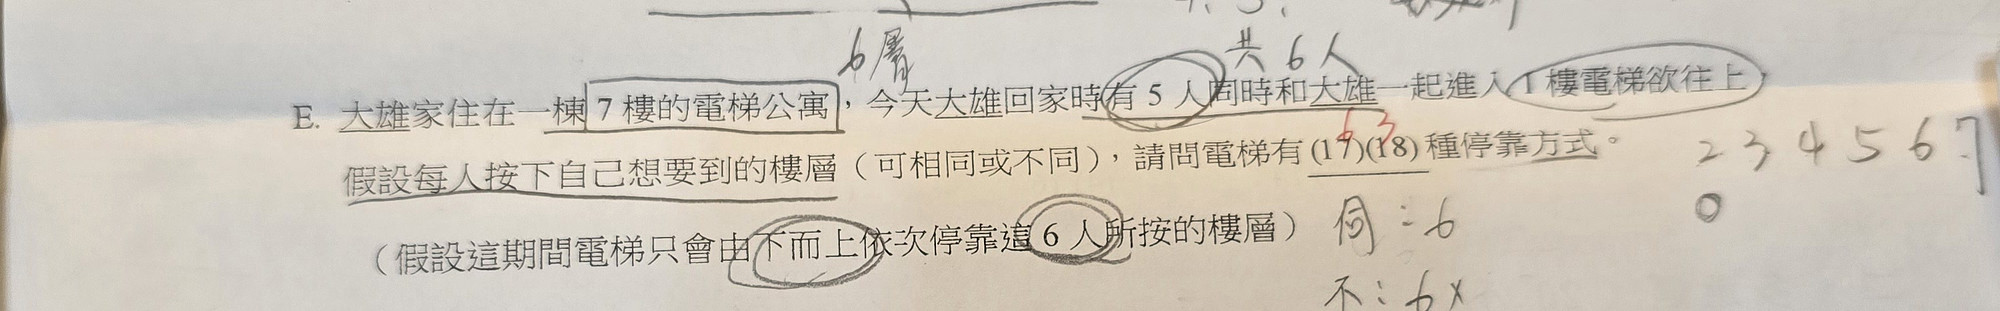 6層 共6人
E. 大雄家住在一棟7樓的電梯公寓，今天大雄回家時有5人同時和大雄一起進入1樓電梯欲往上，
6 3
假設每人按下自己想要到的樓層（可相同或不同），請問電梯有(17)(18)種停靠方式。
2 3 4 5 6 7
0
（假設這期間電梯只會由下而上依次停靠這6人所按的樓層）
同：6
不：6×